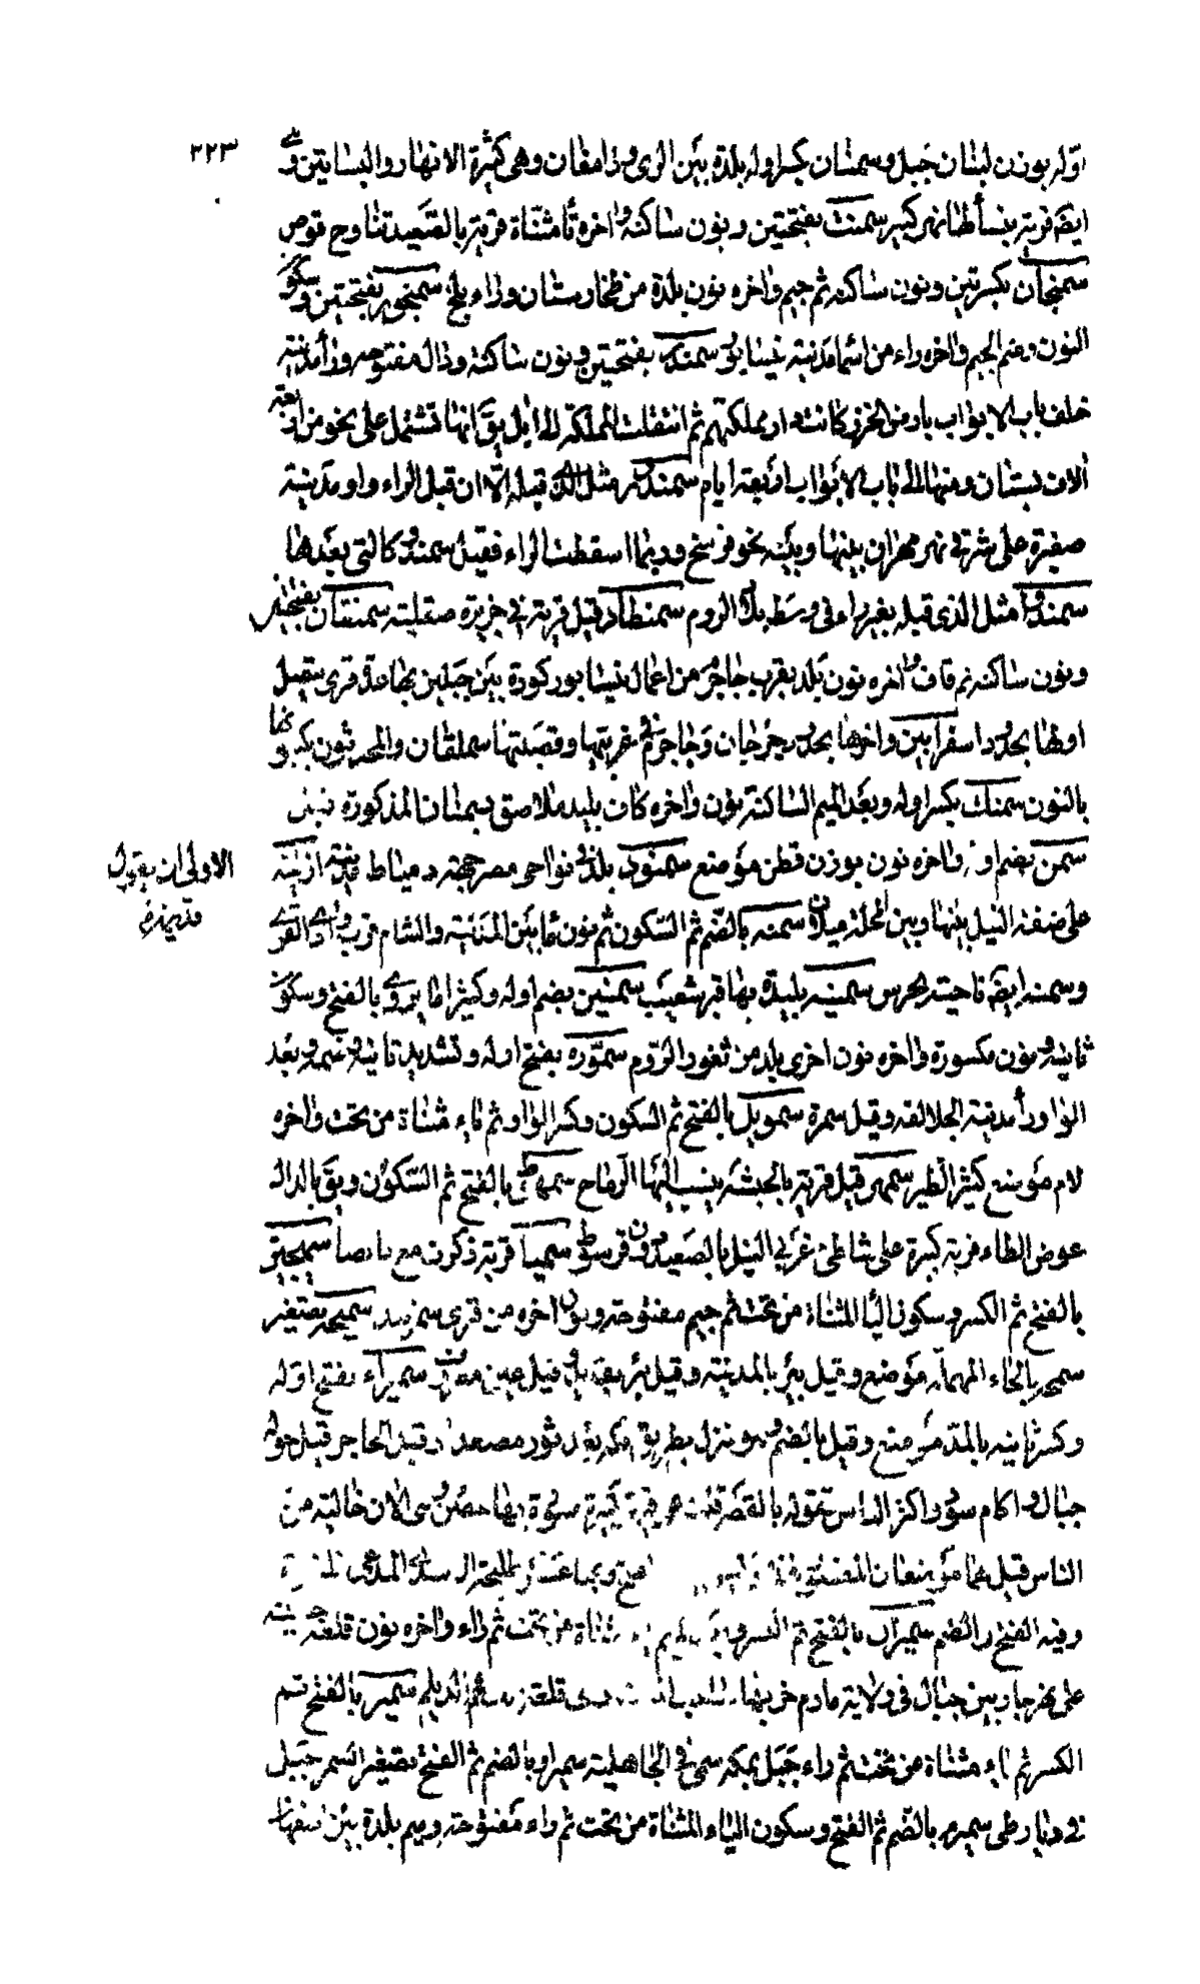 ٣٢٣
اوله بوزن لبنان جبل وسمنان بكسر اوله بلدة بين الرى ودامغان وهى كثيرة الانهار والبساتين وهى
ايضا قرية بنسأ لها نهر كبير سمنت بفتحتين ونون ساكنة واخره تأ مثناة قرية بالصعيد تناوح قوص
سمنجان بكسرتين ونون ساكنه ثم جيم واخره نون بلدة من طخارستان وراء بلخ سمنجور بفتحتين وسكون
النون وضم الجيم واخره راء من اسما مدينة نيسابور سمندر بفتحتين ونون ساكنة ودال مفتوحه ورأ مدينة
خلف باب الابواب بارض الخزر كانت دار مملكتهم ثم انتقلت المملكة الى ايل يقال انها تشتمل على نحو من اربعة
الاف بستان ومنها الى باب الابواب اربعة ايام سمندور مثل الذى قبله الا ان قبل الراء واو مدينة
صغيرة على شرقى نهر مهران بينها وبينه نحو فرسخ وربما اسقطت الراء فقيل سمندو كالتى بعدها
سمندو مثل الذى قبله بغير راء فى وسط بلاد الروم سمنطار قيل قرية فى جزيرة صقلية سمنقان بفتحتين
ونون ساكنه ثم قاف واخره نون بلد بقرب جاجرم من اعمال نيسابور كورة بين جبلين بها عدة قرى يتصل
اولها بحدود اسفرايين واخرها بحدود جرجان وجاجرم فى غربيها وقصبتها سملقان والمحدثون يكتبونها
بالنون سمنك بكسر اوله وبعد الميم الساكنة نون واخره كاف بليد ملاصق بسمنان المذكورة
سمن بضم اوله واخره نون بوزن قطن موضع سمنود بلد فى نواحى مصر جهة دمياط مدينة ازلية
الاولى ان يقول
قديمة
على ضفة النيل بينها وبين المحلة ميلان سمنه بالضم ثم السكون ثم نون ما بين المدينة والشام قرب وادى القرى
وسمنه ايضا ناحية بجرش سمنيه بليدة بها قبر شعيب سمنين بضم اوله وكثيرا ما يروى بالفتح وسكون
ثانيه ونون مكسورة واخره نون اخرى بلد من ثغور الروم سموره بفتح اوله وتشديد ثانيه وضمه وبعد
الواو رأ مدينة الجلالقة وقيل سمرة سمويل بالفتح ثم السكون وكسر الواو ثم ياء مثناة من تحت واخره
لام موضع كثير الطير سمهر قيل قرية بالحبشة ينسب اليها الرماح سمهوط بالفتح ثم السكون ويق بالدال
عوض الطاء قرية كبيرة على شاطئ غربى النيل بالصعيد دون فرسوط سميا قرية ذكرت مع بانصا سميجن
بالفتح ثم الكسر وسكون اليا المثناة من تحت ثم جيم مفتوحة ونون اخره من قرى سمرقند سميحه تصغير
سمحه بالحاء المهملة موضع وقيل بئر بالمدينة وقيل بئر بقديد وقيل عين سميراء بفتح اوله
وكسر ثانيه بالمد موضع وقيل بالضم هو منزل بطريق مكة بعد توز مصعدا وقيل الحاجر قيل حوله
جبال واكام سود اكثر الناس يقوله بالقصر قرية كبيرة بها حصن وهى الان خالية من
الناس قيل هما موضعان
وفيه الفتح والضم سميران بالفتح ثم الكسر مثناة من تحت ثم راء واخره نون قلعة حصينة
على نهر جار بين جبال فى ولاية تارم خربها قلعة الديلم سمير بالفتح ثم
الكسر ثم ياء مثناة من تحت ثم راء جبل بمكه سمى فى الجاهلية سمير او بالضم ثم الفتح تصغير السمر جبل
فى ديار طى سميرم بالضم ثم الفتح وسكون الياء المثناة من تحت ثم راء مفتوحة وميم بلدة بين اصفهان